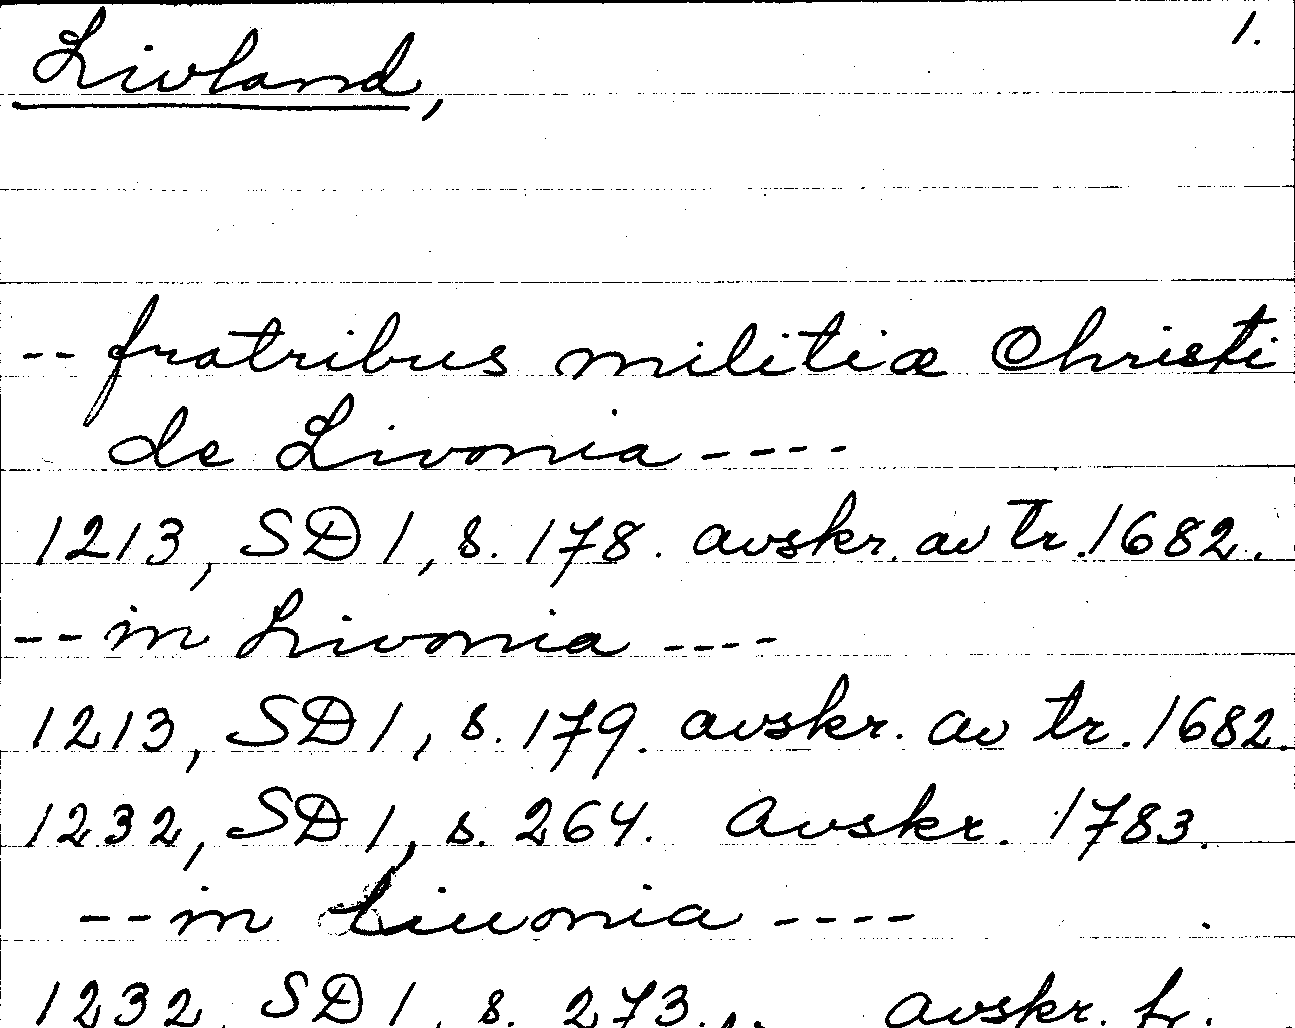 1.
Livland,
-- fratribus militiæ Christi
de Livonia ----
1213, SD 1, s. 178. avskr. av tr. 1682.
-- in Livonia ----
1213, SD 1, s. 179. avskr. av tr. 1682.
1232, SD 1, s. 264. Avskr. 1783.
-- in Liuonia ----
1232, SD 1, s. 273. avskr. fr.